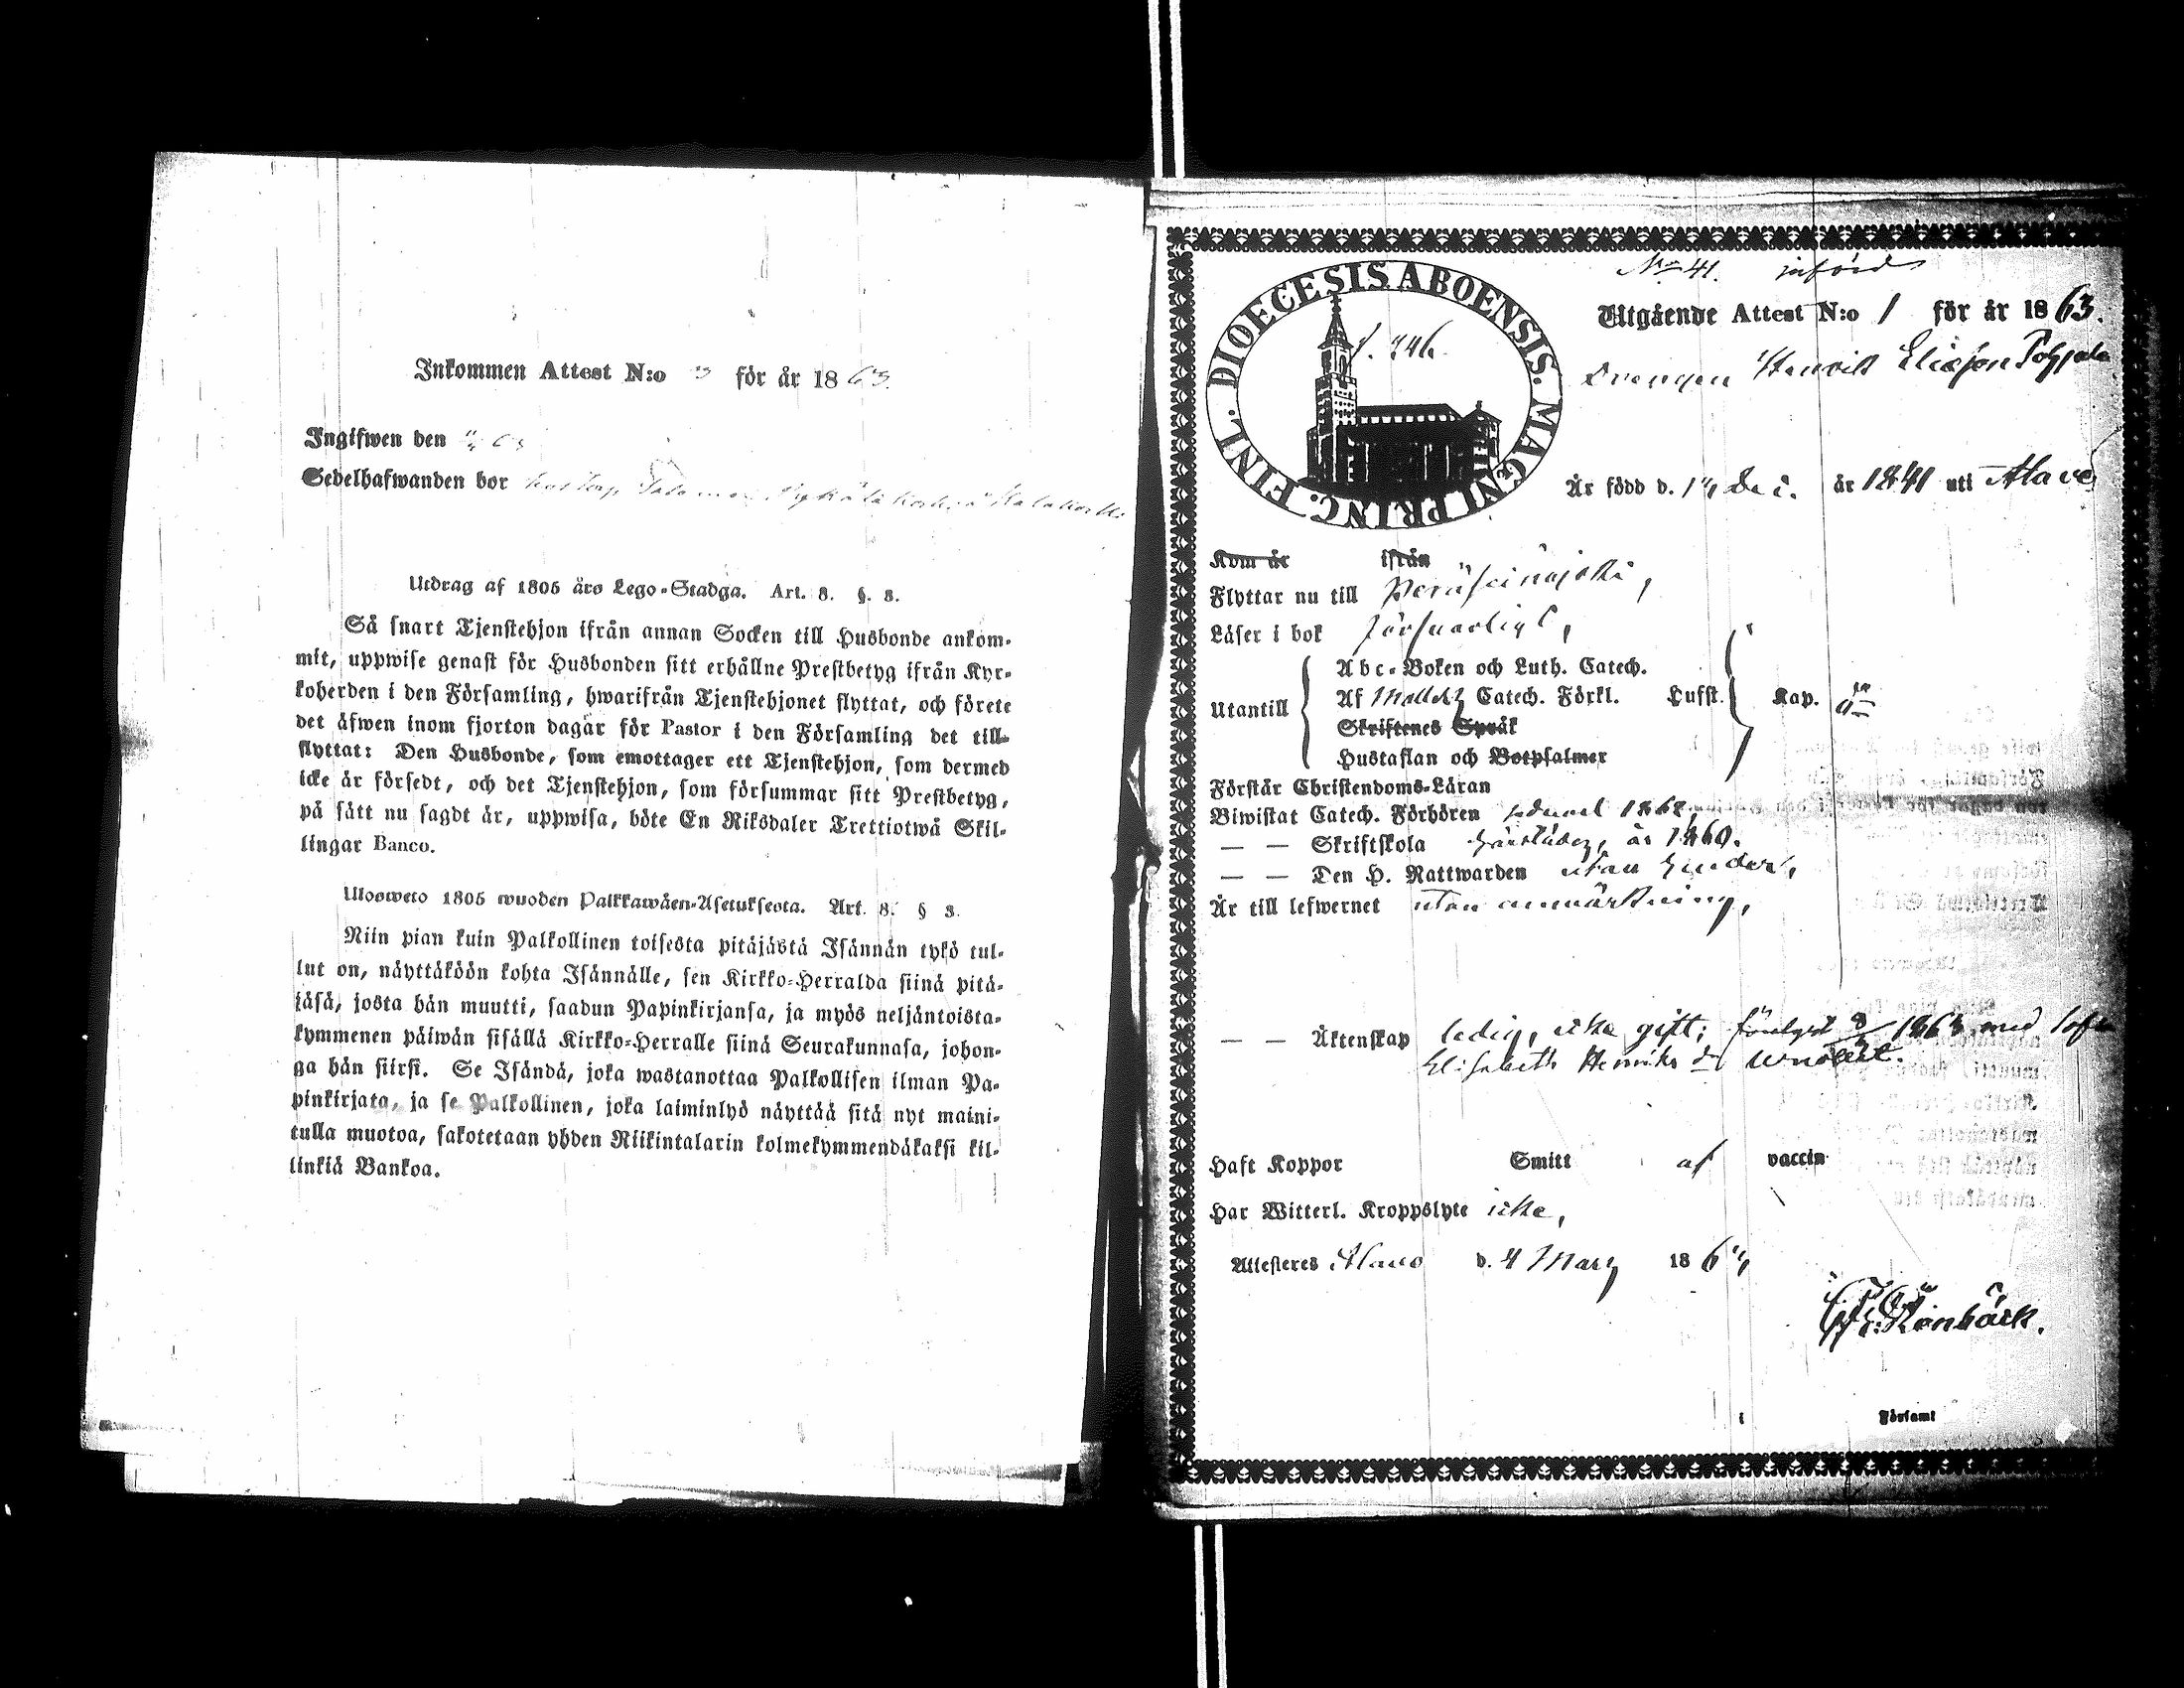 Inkommen Attest N:o 3 för år 1863.
Ingifwen den
Sedelhafwanden bor
Utdrag af 1805 års Lego-Stadga. Art. 8. §. 3.
Så snart Tjenstehjon ifrån annan Socken till Husbonde ankom-
mit, uppwise genast för Husbonden sitt erhållne Prestbetyg ifrån Kyr-
koherden i den Församling, hwarifrån Tjenstehjonet flyttat, och förete
det äfwen inom fjorton dagar för Pastor i den Församling det till-
flyttat: Den Husbonde, som emottager ett Tjenstehjon, som dermed
icke är försedt, och det Tjenstehjon, som försummar sitt Prestbetyg,
på sätt nu sagdt är, uppwisa, böte En Riksdaler Trettiotwå Skil-
lingar Banco.
Ulosweto 1805 wuoden Palkkawäen-Asetuksesta. Art. 8. § 3.
Niin pian kuin Palkollinen toisesta pitäjästä Isännän tykö tul-
lut on, näyttäköön kohta Isännälle, sen Kirkko-Herralda siinä pitä-
jäsä, josta hän muutti, saadun Papinkirjansa, ja myös neljäntoista-
kymmenen päiwän sisällä Kirkko-Herralle siinä Seurakunnasa, johon-
ga hän siirsi. Se Isändä, joka wastanottaa Palkollisen ilman Pa-
pinkirjata, ja se Palkollinen, joka laiminlyö näyttää sitä nyt maini-
tulla muotoa, sakotetaan yhden Riikintalarin kolmekymmendäkaksi kil-
linkiä Bankoa.
DIOECESIS ABOENSIS. MAGNI PRINC. FINL.
No 41. införd
Utgående Attest N:o 1 för år 1863.
Drengen Henrik Eliasson Pohjala
Är född d. Dec. år 1841 uti Alavo
Kom år ifrån
Flyttar nu till Peräseinäjoki,
Läser i bok försvarligt,
Utantill
Abc-Boken och Luth. Catech.
Af Catech. Förkl. Hufst. Kap.
Skriftenes Språk
Hustaflan och Botpsalmer
Förstår Christendoms-Läran
Biwistat Catech. Förhören
— — Skriftskola härstädes, år 1860.
— — Den H. Nattwarden utan hinder,
Är till lefwernet utan anmärkning,
— — Äktenskap ledig, icke gift; med Sofia
Elisabeth Henriks dr
Haft Koppor Smitt af vaccin
Har Witterl. Kroppslyte icke,
Attesteres Alavo d. 4 Mars 186
i Församl